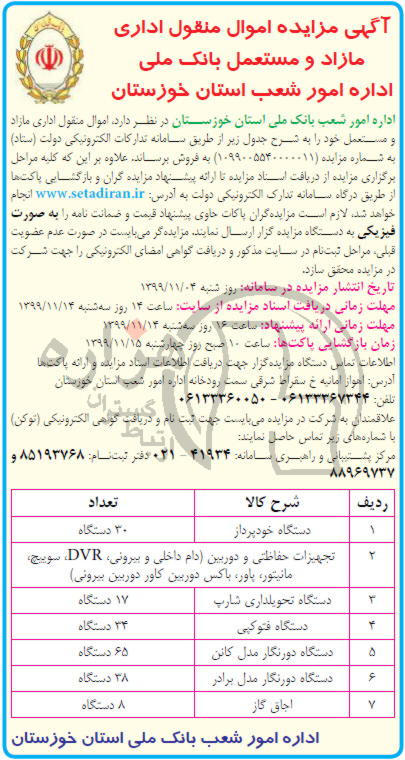 آگهی مزایده اموال منقول اداری
مازاد و مستعمل بانک ملی
اداره امور شعب استان خوزستان
اداره امور شعب بانک ملی استان خوزستان در نظر دارد، اموال منقول اداری مازاد
و مستعمل خود را به شرح جدول زیر از طریق سامانه تدارکات الکترونیکی دولت (ستاد)
به شماره مزایده (1099005540000011) به فروش برساند، علاوه بر این که کلیه مراحل
برگزاری مزایده از دریافت اسناد مزایده تا ارائه پیشنهاد مزایده گران و بازگشایی پاکت‌ها
از طریق درگاه سامانه تدارک الکترونیکی دولت به آدرس: www.setadiran.ir انجام
خواهد شد، لازم است مزایده‌گران پاکات حاوی پیشنهاد قیمت و ضمانت نامه را به صورت
فیزیکی به دستگاه مزایده گزار ارسال نمایند. مزایده‌گر می‌بایست در صورت عدم عضویت
قبلی، مراحل ثبت‌نام در سایت مذکور و دریافت گواهی امضای الکترونیکی را جهت شرکت
در مزایده محقق سازد.
تاریخ انتشار مزایده در سامانه: روز شنبه ۱۳۹۹/۱۱/۰۴
مهلت زمانی دریافت اسناد مزایده از سایت: ساعت ۱۴ روز سه‌شنبه ۱۳۹۹/۱۱/۱۴
مهلت زمانی ارائه پیشنهاد: ساعت ۱۶ روز سه‌شنبه ۱۳۹۹/۱۱/۱۴
زمان بازگشایی پاکت‌ها: ساعت ۱۰ صبح روز چهارشنبه ۱۳۹۹/۱۱/۱۵
اطلاعات تماس دستگاه مزایده‌گزار جهت دریافت اطلاعات اسناد مزایده و ارائه پاکت‌ها
آدرس: اهواز امانیه خ سقراط شرقی سمت رودخانه اداره امور شعب استان خوزستان
تلفن: ۰۶۱۳۳۳۶۷۳۴۴ - ۰۶۱۳۳۳۶۰۰۵۰
علاقمندان به شرکت در مزایده می‌بایست جهت ثبت نام و دریافت گواهی الکترونیکی (توکن)
با شماره‌های زیر تماس حاصل نمایند:
مرکز پشتیبانی و راهبری سامانه: ۴۱۹۳۴ - ۰۲۱ دفتر ثبت‌نام: ۸۵۱۹۳۷۶۸ و
۸۸۹۶۹۷۳۷
ردیف شرح کالا تعداد
۱ دستگاه خودپرداز ۳۰ دستگاه
۲ تجهیزات حفاظتی و دوربین (دام داخلی و بیرونی، DVR، سوییچ،
مانیتور، پاور، باکس دوربین کاور دوربین بیرونی)
۳ دستگاه تحویلداری شارپ ۱۷ دستگاه
۴ دستگاه فتوکپی ۳۴ دستگاه
۵ دستگاه دورنگار مدل کانن ۶۵ دستگاه
۶ دستگاه دورنگار مدل برادر ۳۸ دستگاه
۷ اجاق گاز ۸ دستگاه
اداره امور شعب بانک ملی استان خوزستان